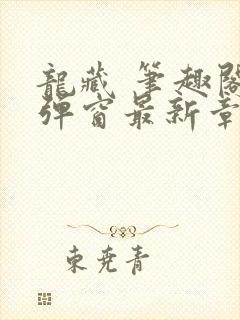 龍藏 筆趣閣
彈窗最新章
東堯青